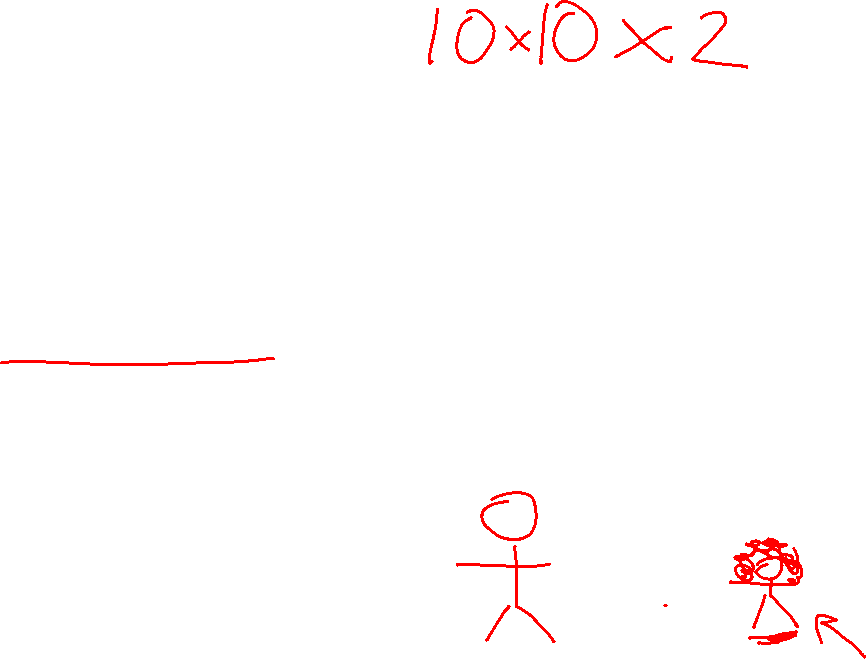 10×10×2